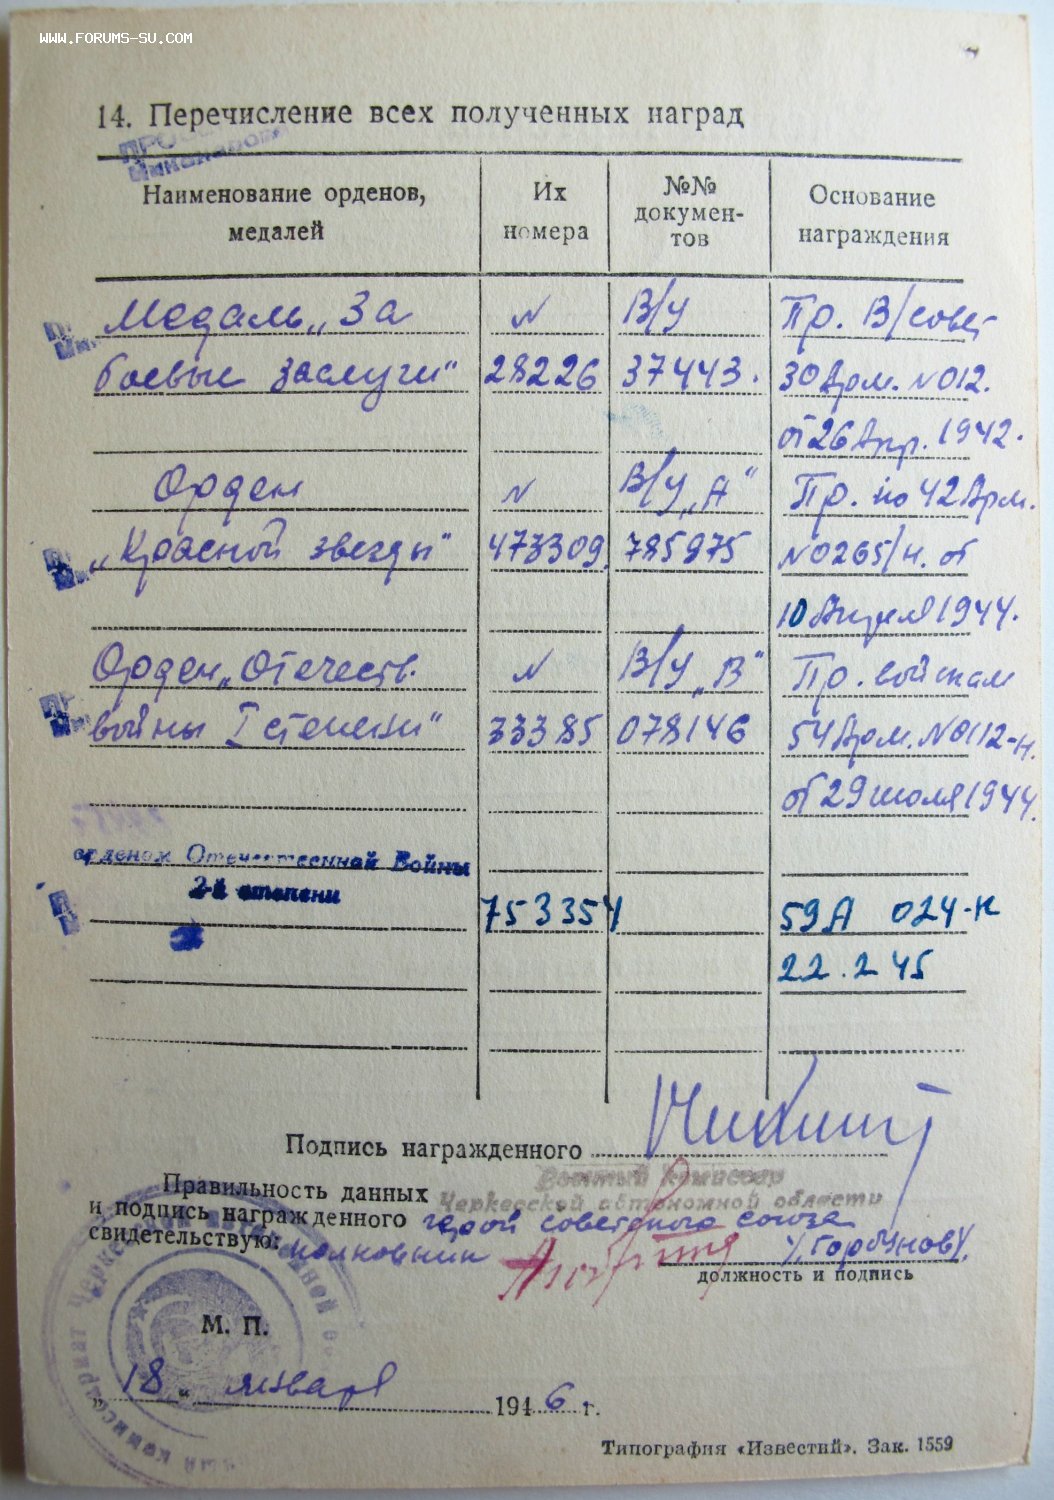 WWW.FORUMS-SU.COM
14. Перечисление всех полученных наград
Наименование орденов, медалей
Их номера
№№ докумен-тов
Основание награждения
Медаль „За № В/У Пр. В/совет
боевые заслуги" 28226 37443. 30 Арм. №012.
от 26 Апр. 1942.
Орден № В/У „А" Пр. по 42 Арм.
„Красной звезды" 473309. 785975 №0265/н. от
10 Апреля 1944.
Орден „Отечеств. № В/У „В" Пр. войскам
войны I степени" 33385 078146 54 Арм. №0112-н.
от 29 июля 1944.
орденом Отечественной Войны
2-й степени 753354 59А 024-н
22.2 45
Подпись награжденного
Военный Комиссар
Правильность данных
Черкесской автономной области
и подпись награжденного герой советского союза
свидетельствую: полковник /Горбунов/.
должность и подпись
М. П.
„18" января 1946 г.
Типография «Известий». Зак. 1559